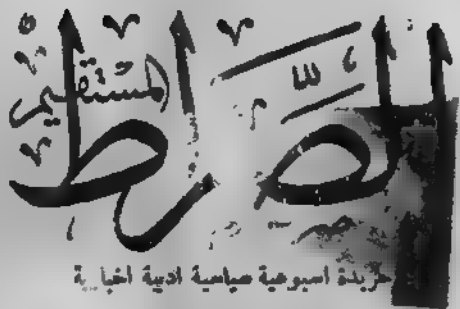 الصراط
المستقيم
جريدة اسبوعية سياسية ادبية أخبارية